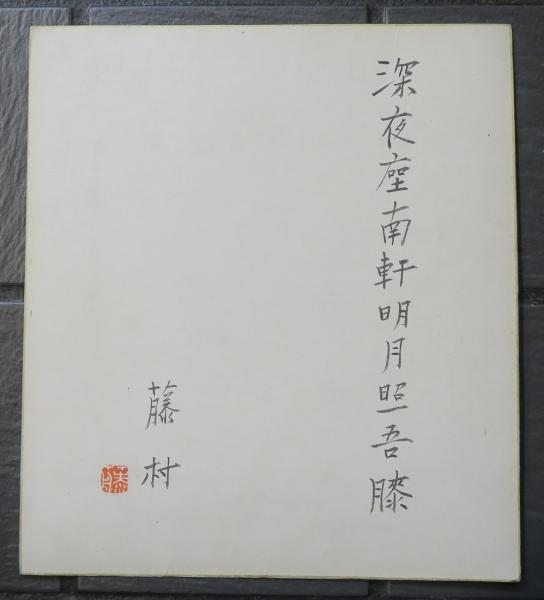 深夜坐南軒明月照吾膝
藤村